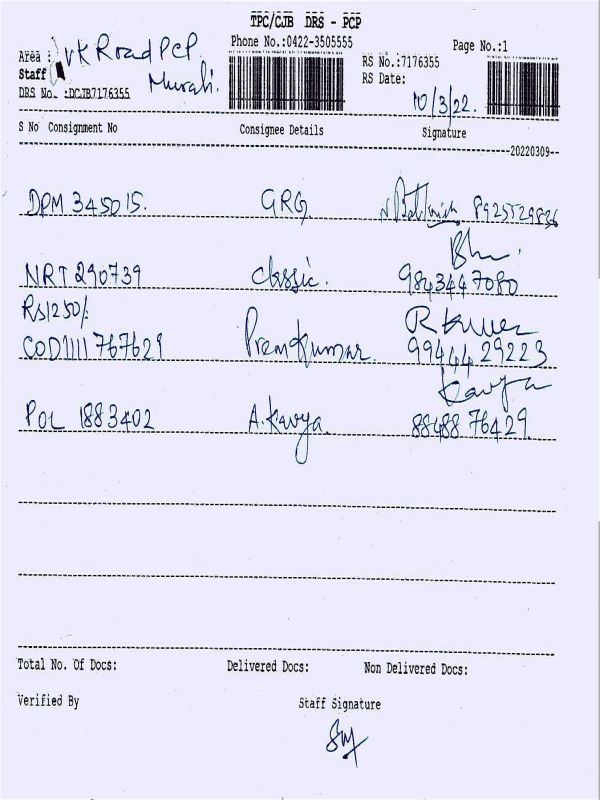 TPC/CJB DRS - PCP
Phone No.:0422-3505555
Page No.:1
Area : VK Road PCP.
RS No.:7176355
Staff : Murali.
RS Date:
DRS No. :DCJB7176355
10/3/22.
S No Consignment No Consignee Details Signature
20220309
DPM 345015. GRG 8925529836
NRT 290739 Classic. 9843447080
Rs1250/-
COD1111767629 Premkumar. 99444 29223
Kavya
POL 1883402 A.Kavya. 88488 76429.
Total No. Of Docs: Delivered Docs: Non Delivered Docs:
Verified By Staff Signature